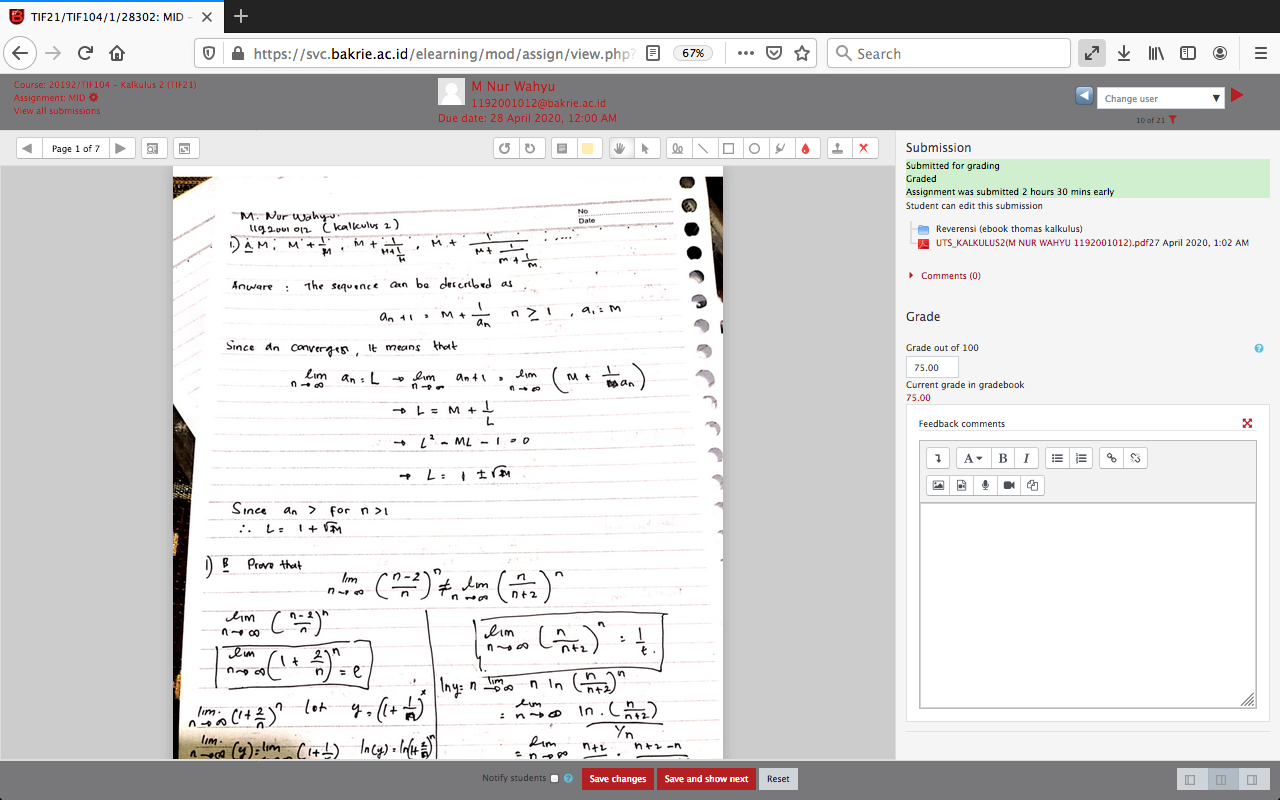 TIF21/TIF104/1/28302: MID –
https://svc.bakrie.ac.id/elearning/mod/assign/view.php?
67%
Search
Course: 20192/TIF104 – Kalkulus 2 (TIF21)
Assignment: MID
View all submissions
M Nur Wahyu
1192001012@bakrie.ac.id
Due date: 28 April 2020, 12:00 AM
Change user
10 of 21
Page 1 of 7
M. Nur Wahyu.
1192001012 (kalkulus 2)
No
Date
1.) A M, M + 1/M, M + 1/(M+1/M), M + 1/(M+1/(M+1/M)) .....
Anware : The sequence can be described as
an+1 = M + 1/an n ≥ 1, a1 = M
Since an converges, it means that
lim n→∞ an = L → lim n→∞ an+1 = lim n→∞ (M + 1/an)
→ L = M + 1/L
→ L² - ML - 1 = 0
→ L = 1 ± √M
Since an > for n >1
∴ L = 1 + √M
1) B Prove that
lim n→∞ ((n-2)/n)^n ≠ lim n→∞ (n/(n+2))^n
lim n→∞ ((n-2)/n)^n
lim n→∞ (1 + 2/n)^n = e
lim n→∞ (1+2/n)^n let y =
lim n→∞ (n/(n+2))^n = 1/
ln y = n lim n→∞ n ln (n/(n+2))^n
= lim n→∞ ln . (n/(n+2))
1/n
= lim n→∞ n+2 . n+2-n
Submission
Submitted for grading
Graded
Assignment was submitted 2 hours 30 mins early
Student can edit this submission
Reverensi (ebook thomas kalkulus)
UTS_KALKULUS2(M NUR WAHYU 1192001012).pdf27 April 2020, 1:02 AM
Comments (0)
Grade
Grade out of 100
75.00
Current grade in gradebook
75.00
Feedback comments
A B I
Notify students
Save changes
Save and show next
Reset